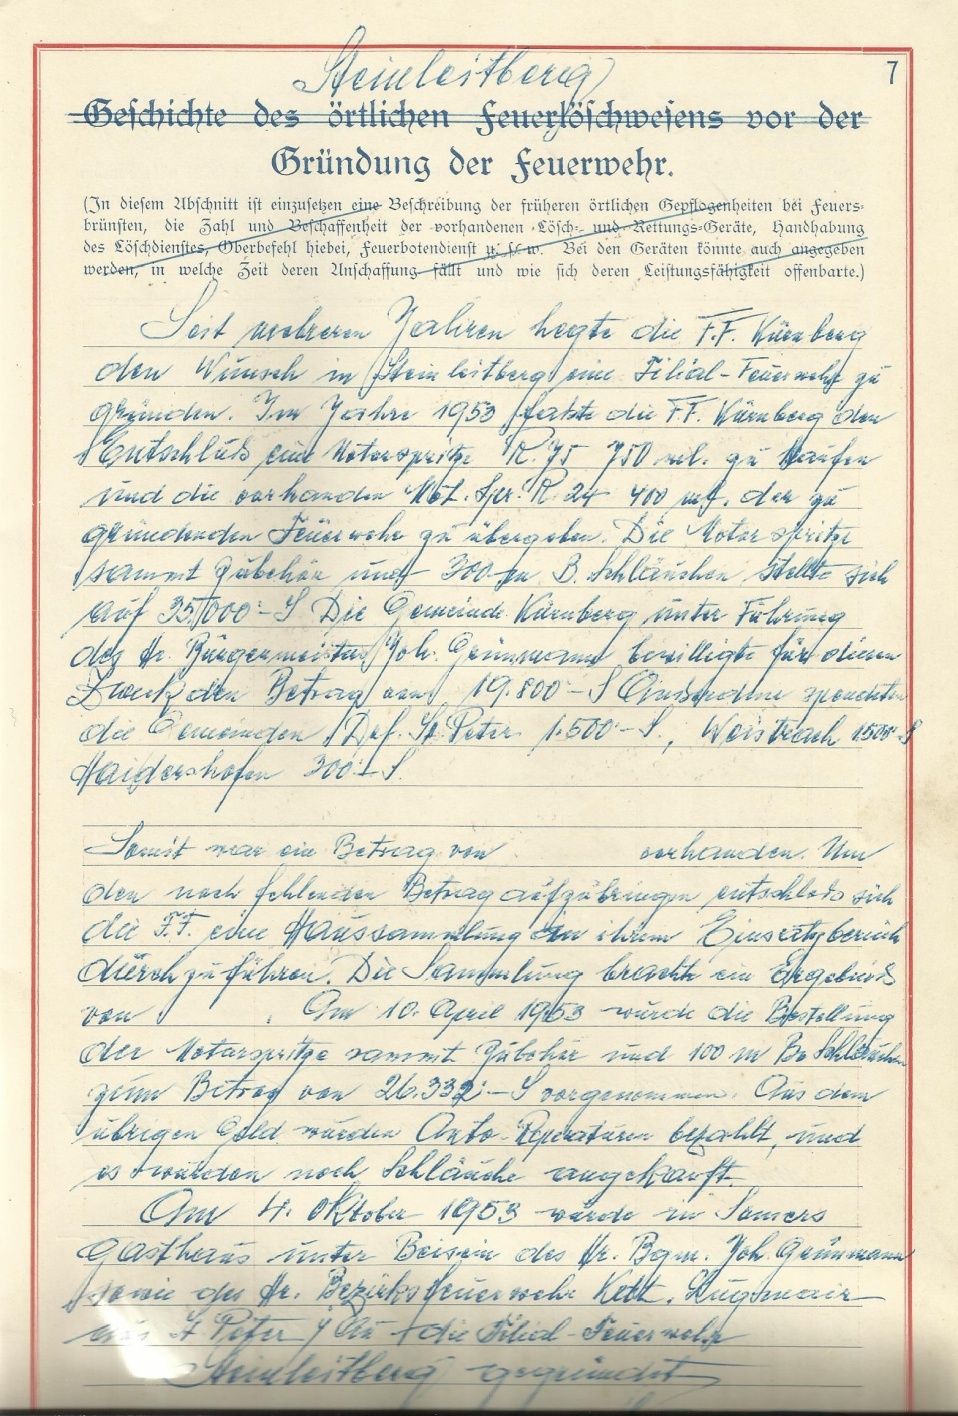 7
Steinleitberg
Geschichte des örtlichen Feuerlöschwesens vor der
Gründung der Feuerwehr.
(In diesem Abschnitt ist einzusetzen eine Beschreibung der früheren örtlichen Gepflogenheiten bei Feuers-
brünsten, die Zahl und Beschaffenheit der vorhandenen Lösch- und Rettungs-Geräte, Handhabung
des Löschdienstes, Oberbefehl hiebei, Feuerbotendienst u. s. w. Bei den Geräten könnte auch angegeben
werden, in welche Zeit deren Anschaffung fällt und wie sich deren Leistungsfähigkeit offenbarte.)
Seit mehreren Jahren hegte die F.F. Kürnberg
den Wunsch in Steinleitberg eine Filial-Feuerwehr zu
gründen. Im Jahre 1953 faßte die FF. Kürnberg den
Entschluß eine Motorspritze R. 75 750 ml. zu kaufen
und die vorhanden Mot. Spr. R. 24 400 ml. der zu
gründenden Feuerwehr zu übergeben. Die Motorspritze
sammt Zubehör und 300 m B. Schläuchen stellte sich
auf 35.000.- S Die Gemeinde Kürnberg unter Führung
des Hr. Bürgermeister Joh. Grünmann bewilligte für diesen
Zweck den Betrag von 19.800.- S Ausserdem spendeten
die Gemeinden Dorf. St. Peter 1.500.- S., Weistrach 1500.- S
Haidershofen 300.- S.
Somit war ein Betrag von vorhanden. Um
den noch fehlenden Betrag aufzubringen entschloß sich
die F.F. eine Haussammlung in ihrem Einsatzbereich
durchzuführen. Die Sammlung brachte ein Ergebnis
von . Am 10. April 1953 wurde die Bestellung
der Motorspritze sammt Zubehör und 100 m B. Schläuchen
zum Betrag von 26.332.- S vorgenommen. Aus dem
übrigen Geld wurden Auto-Reperaturen bezahlt, und
es wurden noch Schläuche angekauft.
Am 4. Oktober 1953 wurde in Samers
Gasthaus unter Beisein des Hr. Bgm. Joh. Grünmann
sowie des Hr. Bezirksfeuerwehr Kdt. Zugmair
aus St Peter / Au die Filial-Feuerwehr
Steinleitberg gegründet